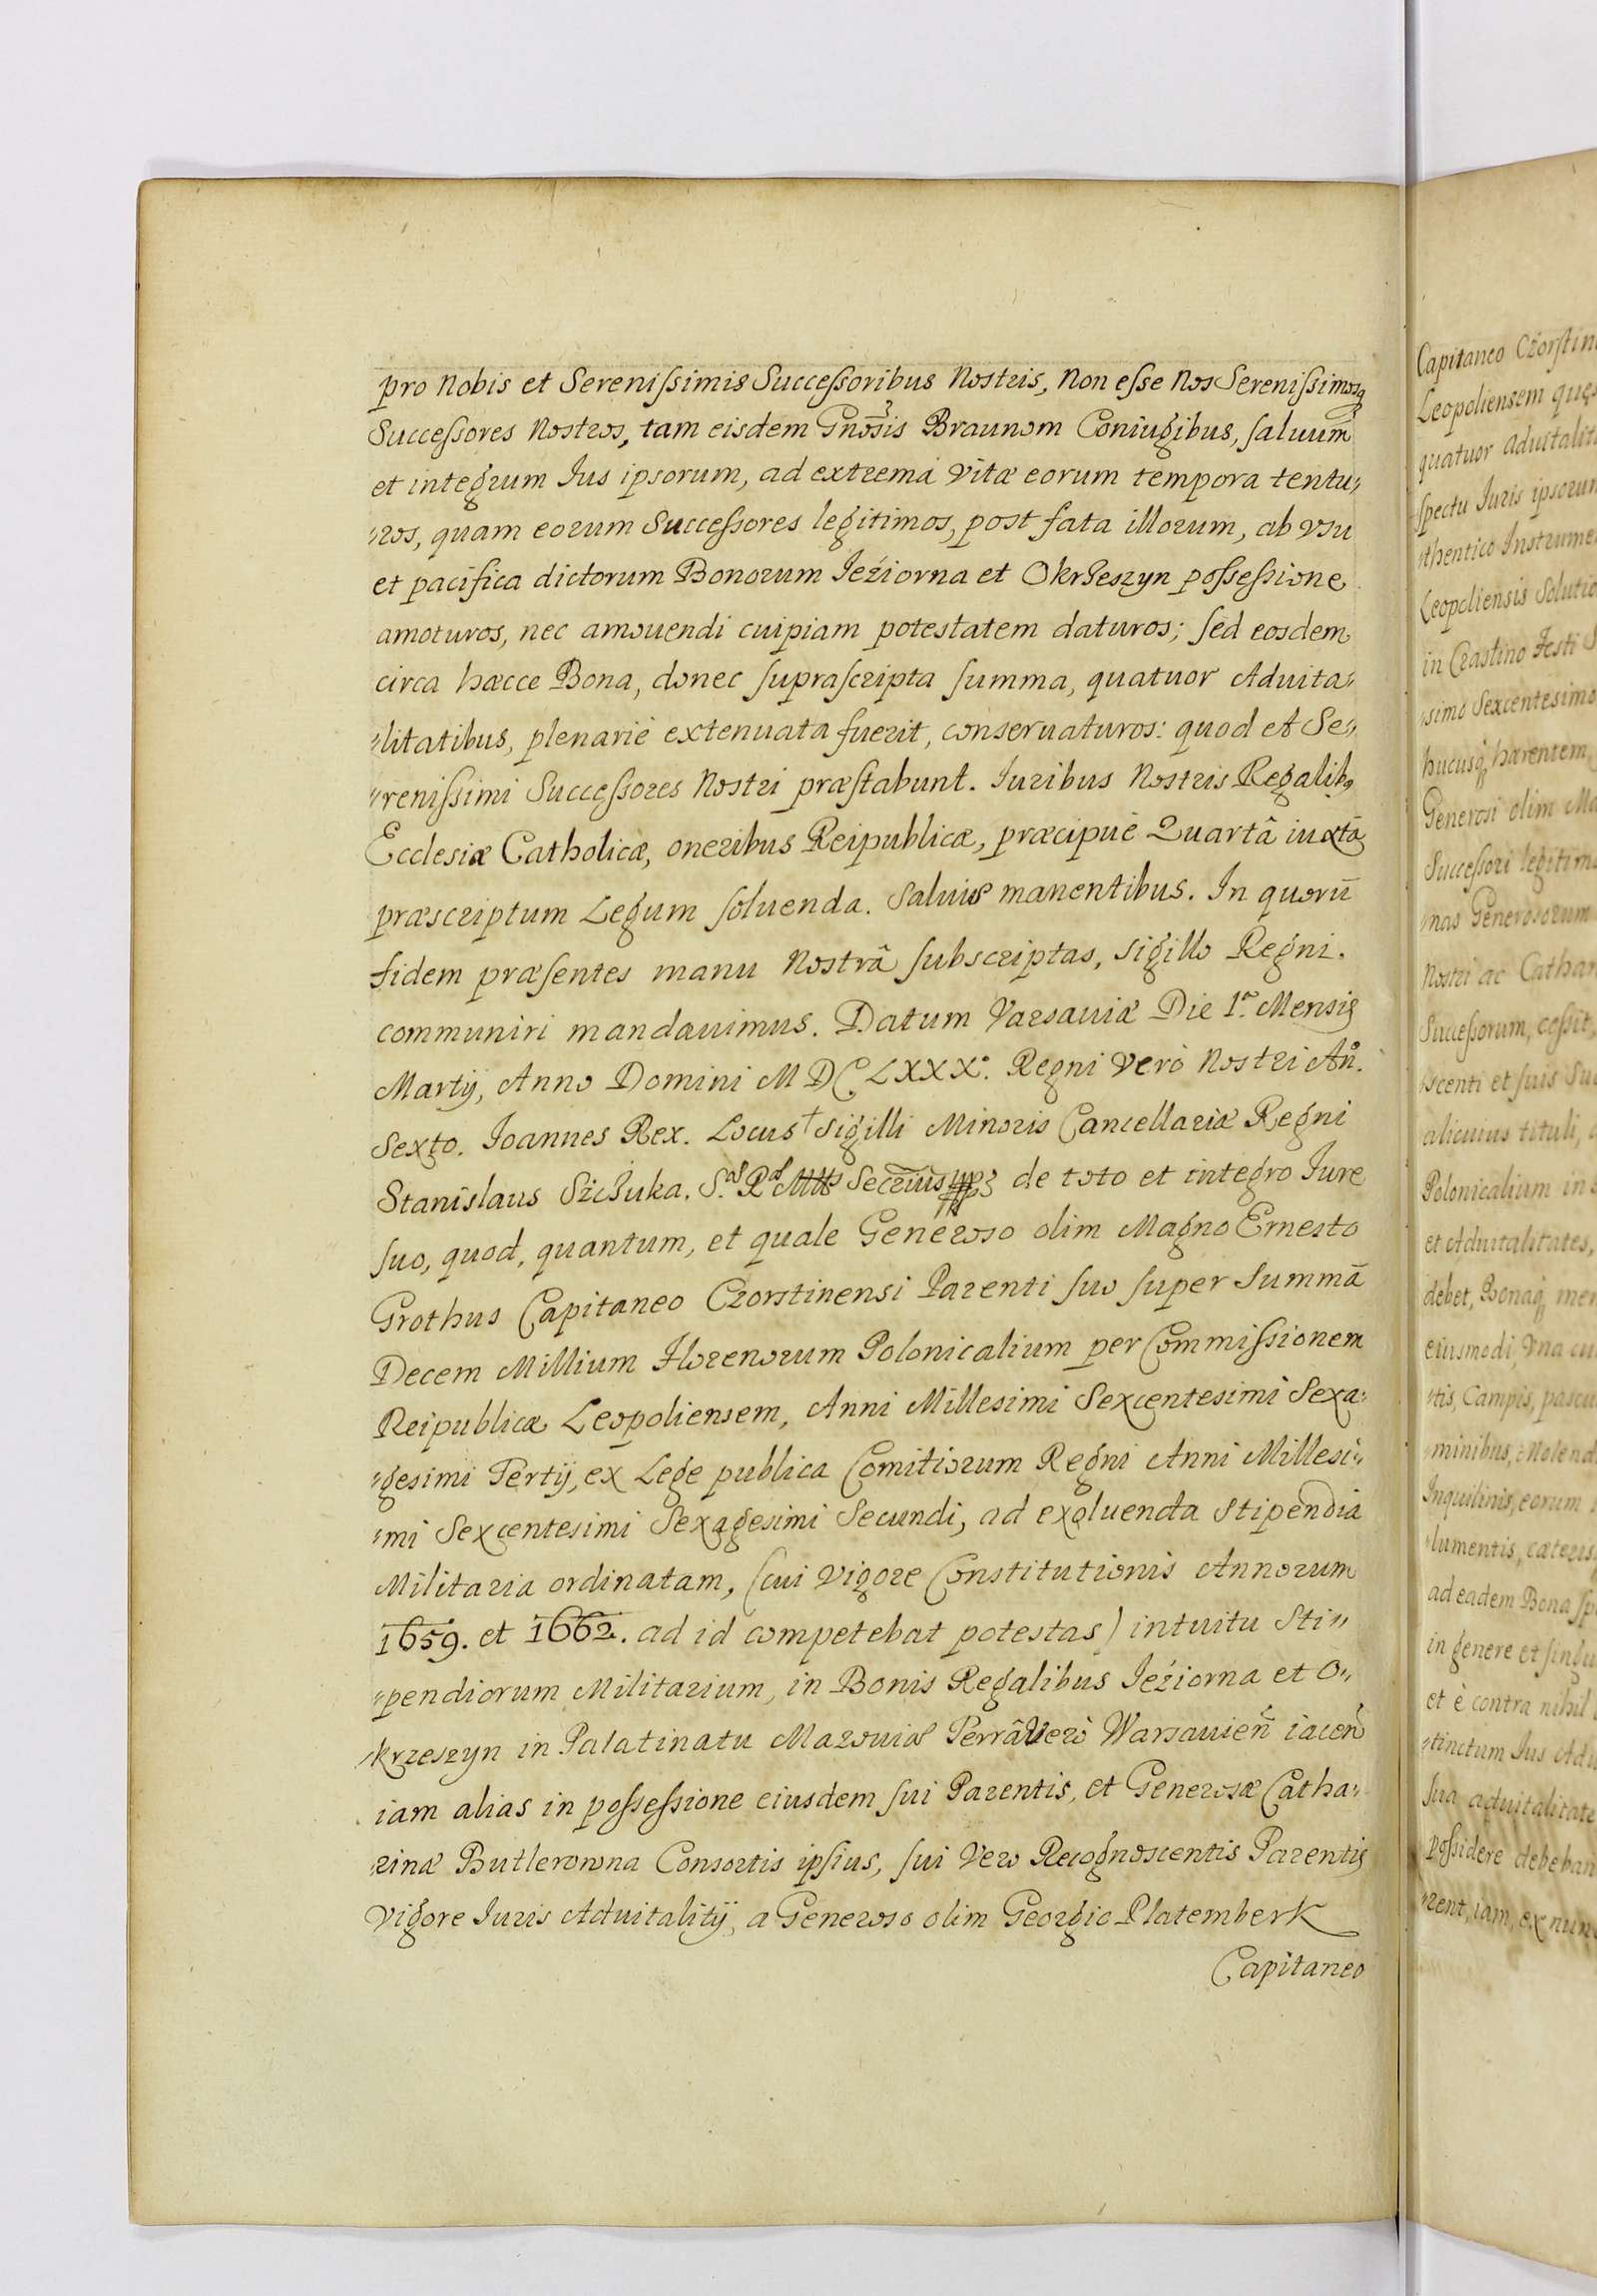 pro Nobis et Serenissimis Successoribus Nostris, Non esse Nos Serenissimosq
Successores Nostros, tam eisdem Gnosis Braunom Coniugibus, saluum
et integrum Ius ipsorum, ad extrema Vitæ eorum tempora tentu„
„ros, quam eorum Successores legitimos, post fata illorum, ab Vsu
et pacifica dictorum Bonorum Jeźiorna et Okrzeszyn possessione
amoturos, nec amouendi cuipiam potestatem daturos; sed eosdem
circa hæcce Bona, donec suprascripta summa, quatuor Aduita„
„litatibus, plenarié extenuata fuerit, conseruaturos: quod et Se„
„renissimi Successores Nostri præstabunt. Iuribus Nostris Regalibq
Ecclesiæ Catholicæ, oneribus Reipublicæ, præcipuè Quartâ iuxta
præscriptum Legum soluenda. Saluis manentibus. In quorū
fidem præsentes manu Nostrâ subscriptas, sigillo Regni.
communiri mandauimus. Datum Varsauiæ Die 1.ª Mensis
Martij, Anno Domini MDCLXXX°. Regni Verò Nostri Añ°.
Sexto. Joannes Rex. Locus † Sigilli Minoris Cancellariæ Regni
Stanislaus Szczuka. de toto et integro Iure
suo, quod, quantum, et quale Generoso olim Magno Ernesto
Grothus Capitaneo Czorstinensi Parenti suo super Summā
Decem Millium Florenorum Polonicalium per Commissionem
Reipublicæ Leopoliensem, Anni Millesimi Sexcentesimi Sexa„
„gesimi Tertij, ex Lege publica Comitiorum Regni Anni Millesi„
„mi Sexcentesimi Sexagesimi Secundi, ad exoluenda Stipendia
Militaria ordinatam, (cui Vigore Constitutionis Annorum
1659. et 1662. ad id competebat potestas) intuitu Sti„
„pendiorum Militarium, in Bonis Regalibus Jeźiorna et O„
„krzeszyn in Palatinatu Mazouiæ Terrâ Verò Warsauień iaceń
iam alias in possessione eiusdem sui Parentis, et Generosæ Catha„
„rinæ Butlerowna Consortis ipsius, sui Vero Recognoscentis Parentis
Vigore Iuris Aduitalitij, a Generoso olim Georgio Platemberk
Capitaneo
Capitaneo
Leopoliensem
quatuor
spectu Iuris ipsorum
Leopoliensis
in Crastino Festi
„simo Sexcentesimo
hucusq hærentem,
Generosi olim
Successori
„nas Generosorum
Nostri ac
Successorum, cessit,
„scenti et suis
alicuius tituli,
Polonicalium in
et Aduitalitates,
debet, Bonaq
eiusmodi, Vna
„tis, Campis,
„minibus,
Inquilinis, eorum
„lumentis, cæteris
ad eadem Bona
in genere et
et è contra nihil
„tinctum Ius
sua aduitalitate
possidere
„rent, iam, ex nunc